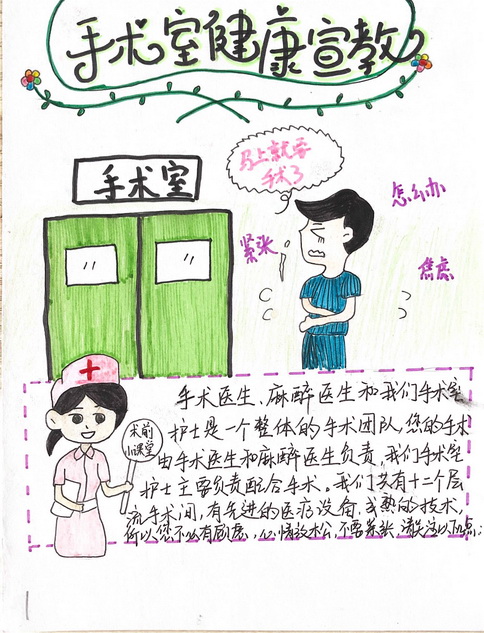 手术室健康宣教
手术室
马上就要
手术了
怎么办
紧张
焦虑
术前
小课堂
手术医生、麻醉医生和我们手术室
护士是一个整体的手术团队,您的手术
由手术医生和麻醉医生负责,我们手术室
护士主要负责配合手术。我们共有十二个层
流手术间,有先进的医疗设备,成熟的技术,
所以您不必有顾虑,心情放松,不要紧张,请关注以下几点: